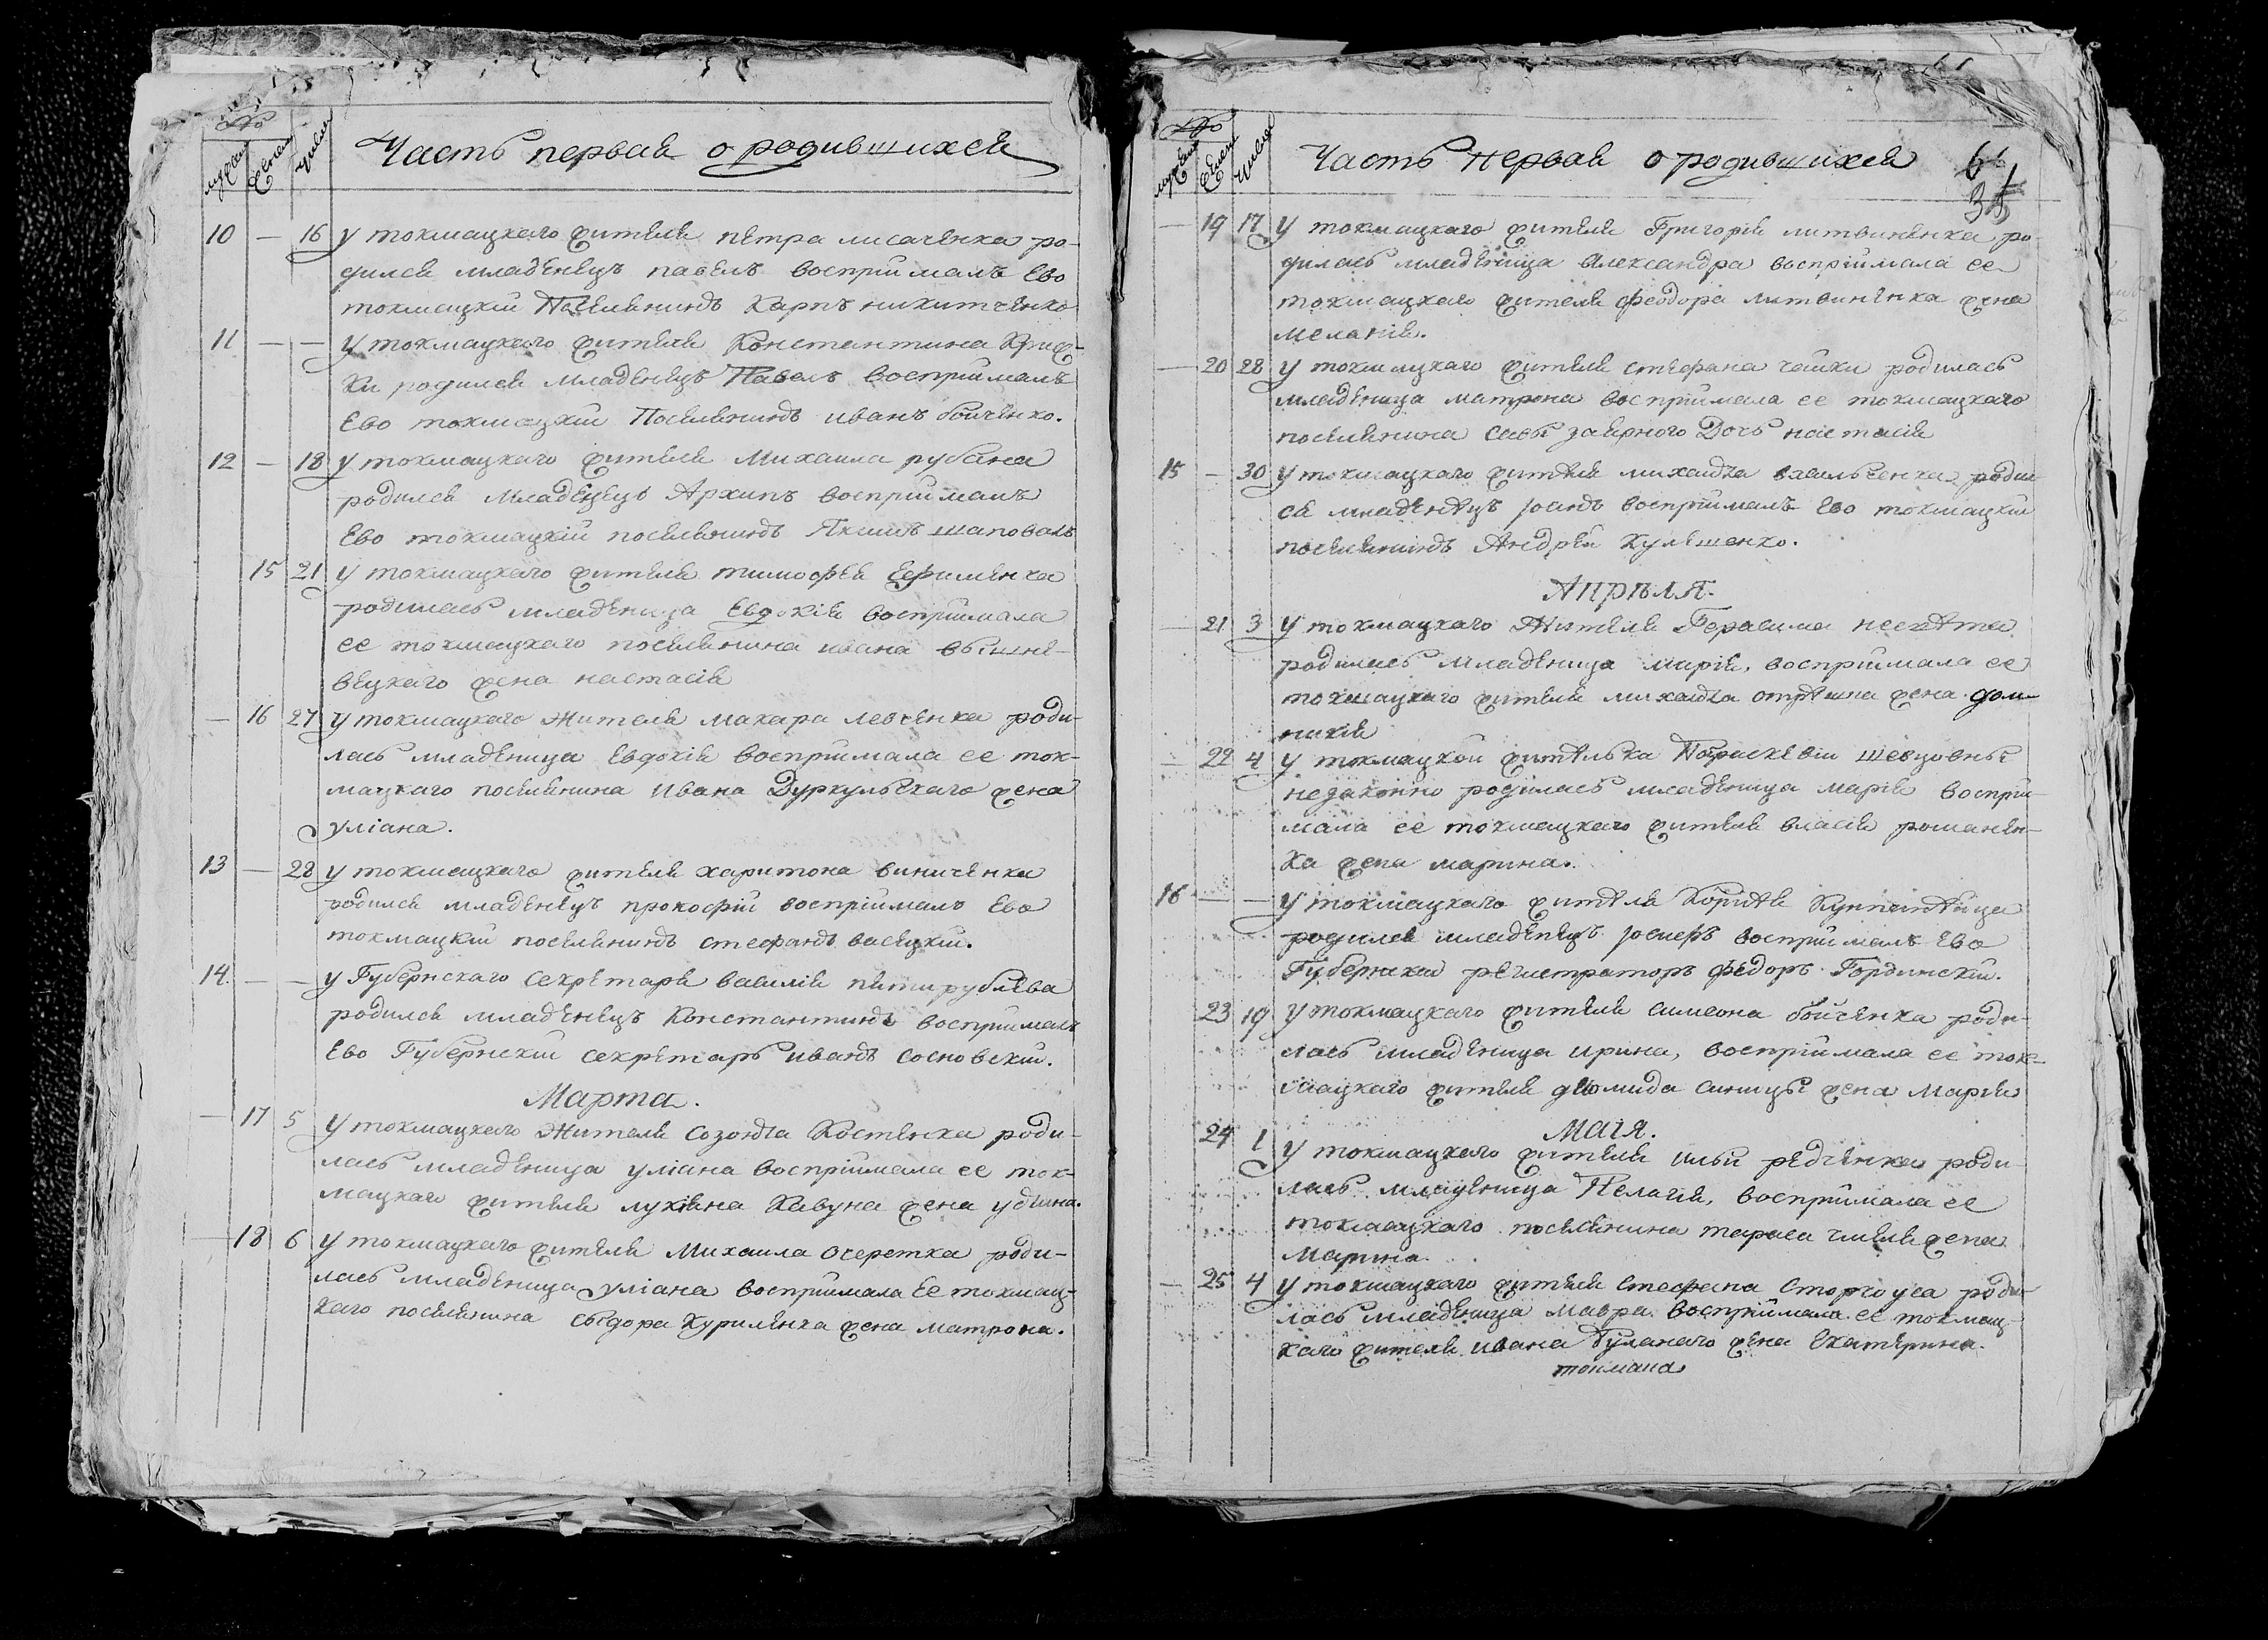 №
Часть первая о родившихся
10 — 16 У токмацкаго жителя петра лисаченка ро-
дился младенецъ павелъ воспрiималъ Ево
токмацкiй Поселянинъ Карпъ никитченко
11 — — У токмацкаго жителя Константина
ки родился младенецъ Павелъ воспрiималъ
Ево токмацкiй Поселянинъ иванъ бойченко.
12 — 18 У токмацкаго жителя Михаила рубана
родился младенецъ Архипъ воспрiималъ
Ево токмацкiй поселянинъ Якимъ шаповалъ
15 21 У токмацкаго жителя тимофея Ефименка
родилась младеница Евдокiя воспрiимала
ее токмацкаго поселянина ивана вышне-
вецкаго жена настасiя
— 16 27 У токмацкаго Жителя макара левченка роди-
лась младеница Евдокiя воспрiимала ее ток-
мацкаго поселянина Ивана Дуркульскаго жена
улiана.
13 — 28 У токмацкаго жителя харитона виниченка
родился младенецъ прокофiй воспрiималъ Ево
токмацкiй поселянинъ стефанъ васецкiй.
14. — — У Губернскаго Секретаря василiя петирублева
родился младенецъ Константинъ воспрiималъ
Ево Губернскiй секретарь иванъ сосновскiй.
Марта.
— 17 5 У токмацкаго Жителя созонта Костенка роди-
лась младеница улiана воспрiимала ее ток-
мацкаго жителя лукiяна Кавуна жена
— 18 6 У токмацкаго жителя Михаила Очеретка роди-
лась младеница улiана воспрiимала Ее токмац-
каго поселянина Сыдора Куриленка жена матрона.
№
Часть первая о родившихся
— 19 17 У токмацкаго жителя Григорiя литвиненка ро-
дилась младеница Александра воспрiимала ее
токмацкаго жителя феодора литвиненка жена
меланiя.
— 20 28 У токмацкаго жителя стефана чайки родилась
младеница матрона воспрiимала ее токмацкаго
поселянина савы заярного Дочь настасiя
15 — 30 У токмацкаго жителя михаила васильченка роди
ся младенецъ воспрiималъ Ево токмацкiй
поселянинъ Андрей Кулешенко.
Апрѣля.
— 21 3 У токмацкаго Жителя Герасима
родилась младеница марiя, воспрiимала ее
токмацкаго жителя михаила жена дом-
никiя
— 22 4 У токмацкой жителька Параскевiи шевцовны
незаконно родилась младеница марiя воспрiи-
мала ее токмацкаго жителя власiя романен-
ка жена марина.
16 — — У токмацкаго жителя
родился младенецъ iосифъ воспрiималъ Ево
Губернскiй регистраторъ федоръ Гординскiй.
23 19 У токмацкаго жителя симеона бойченка роди-
лась младеница ирина, воспрiимала ее ток-
мацкаго жителя дiомида синицы жена марiя
Маiя.
24 1 У токмацкаго жителя ильи редченка роди
лась младеница Пелагiя, воспрiимала ее
токмацкаго поселянина тараса жена
Марина.
— 25 4 У токмацкаго жителя Стефана Сторчоуса роди-
лась младеница мавра воспрiимала ее токмац-
каго жителя ивана Буланаго жена Екатерина.